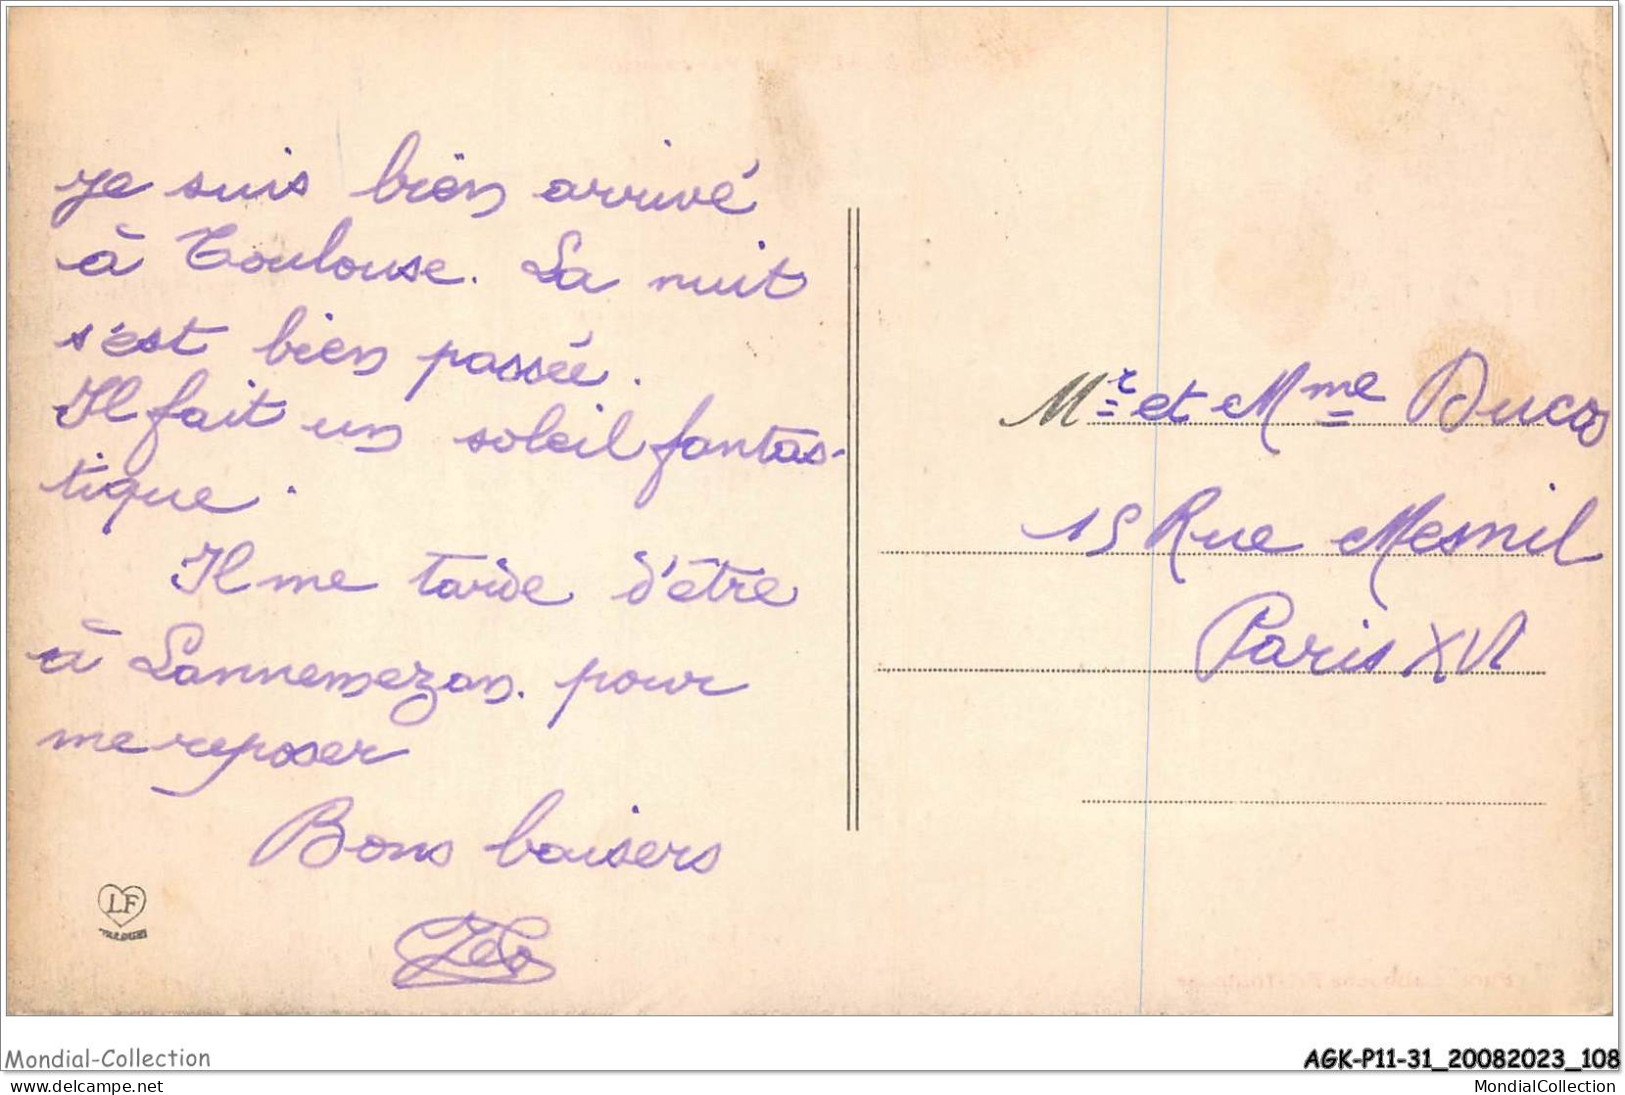 Je suis bien arrivé
à Toulouse. La nuit
s'est bien passée.
Il fait un soleil fantas-
tique.
Il me tarde d'être
à Lannemezan. pour
me reposer
Bons baisers
LF
Mr et Mme Ducas
15 Rue Mesnil
Paris XVI
Mondial-Collection
AGK-P11-31_20082023_108
www.delcampe.net
MondialCollection